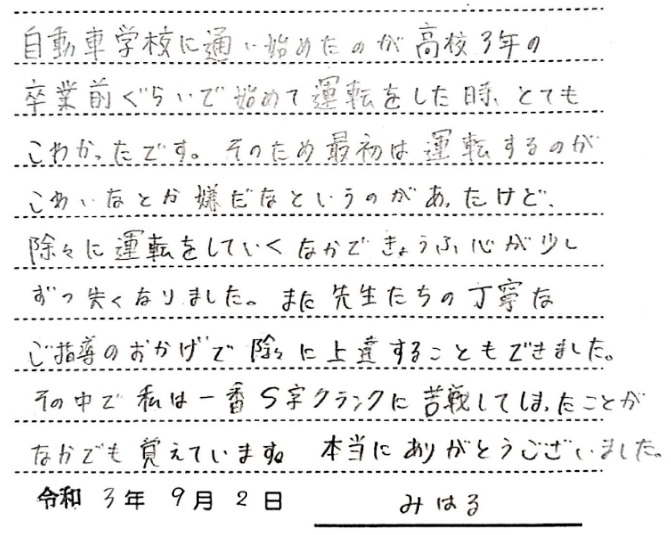 自動車学校に通い始めたのが高校3年の
卒業前ぐらいで始めて運転をした時、とても
こわかったです。そのため最初は運転するのが
こわいなとか嫌だなというのがあったけど、
除々に運転をしていくなかできょうふ心が少し
ずつ失くなりました。また先生たちの丁寧な
ご指導のおかげで除々に上達することもできました。
その中で私は一番S字クランクに苦戦してしまったことが
なかでも覚えています。本当にありがとうございました。
令和3年9月2日 みはる